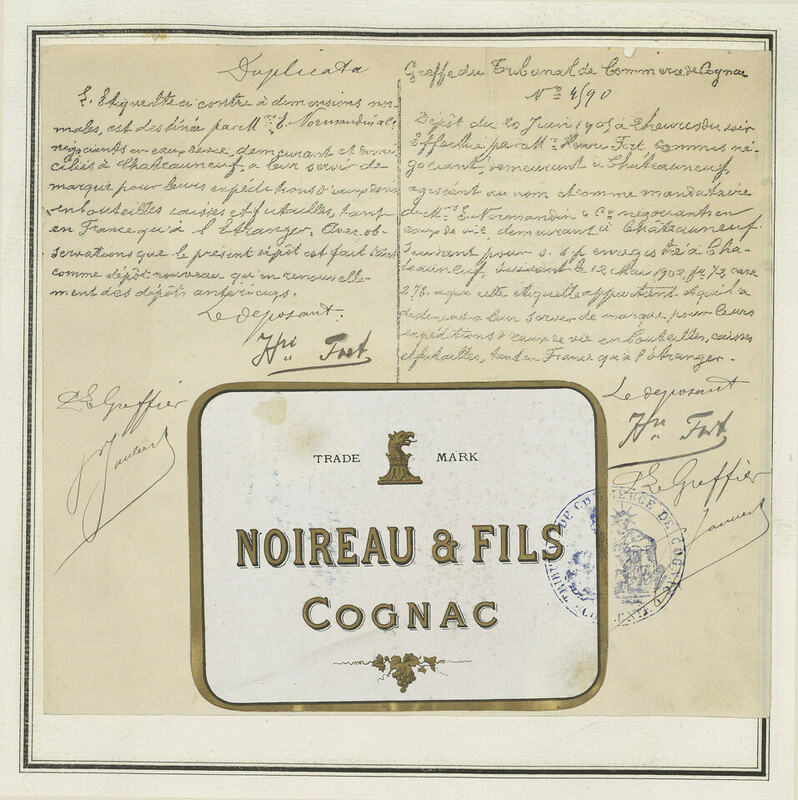 Duplicata
L'Etiquette ci contre à dimensions nor-
males, est destinée par Mrs E. Normandin & Co
négociants en eaux de vie, demeurant et domi-
ciliés à Chateauneuf, a leur servir de
marque pour leurs expéditions d'eaux de vie
en bouteilles caisses et futailles, tant
en France qu'à l'étranger. Avec ob-
servations que le présent dépôt est fait
comme dépôt nouveau qu'en renouvelle-
ment des dépôts antérieurs.
Le déposant.
Hri Fort
Le Greffier
Greffe du Tribunal de Commerce de Cognac
No 4190
Dépôt du 20 Juin 1905 à heures du soir
Effectué par Mr Henri Fort commis né-
gociant, demeurant à Chateauneuf,
agissant au nom et comme mandataire
de Mrs E. Normandin & Co négociants en
eaux de vie, demeurant à Chateauneuf.
Suivant pouvoir s. s. p. enregistré à Cha-
teauneuf, le 12 Mai 1902, fo 72, case
275. a qui cette étiquette appartient et qui l'a
destinent a leur servir de marque pour leurs
expéditions d'eaux de vie en bouteilles, caisses
et futailles, tant en France qu'à l'étranger.
Le déposant
Hri Fort
Le Greffier
TRADE MARK
NOIREAU & FILS
COGNAC
TRIBUNAL DE COMMERCE DE COGNAC